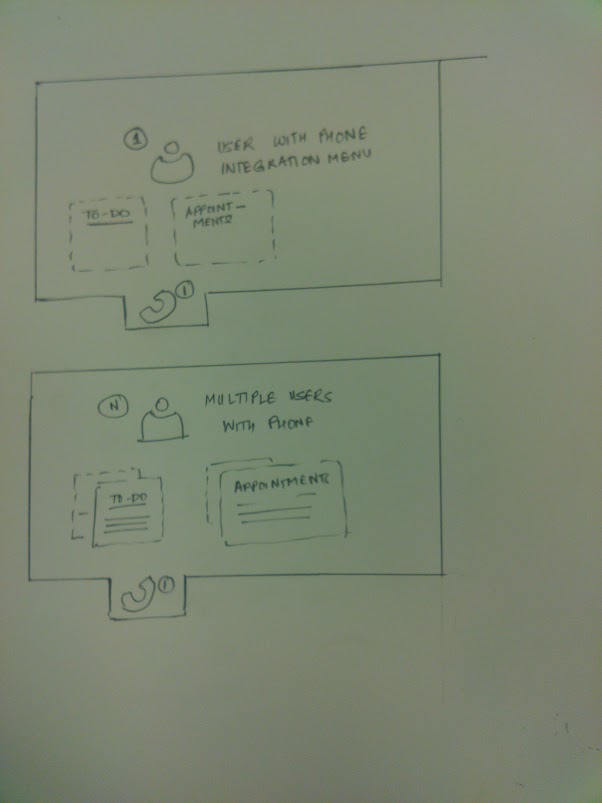 1
USER WITH PHONE
INTEGRATION MENU
TO-DO
APPOINT-
MENTS
1
N
MULTIPLE USERS
WITH PHONE
TO-DO
APPOINTMENTS
1